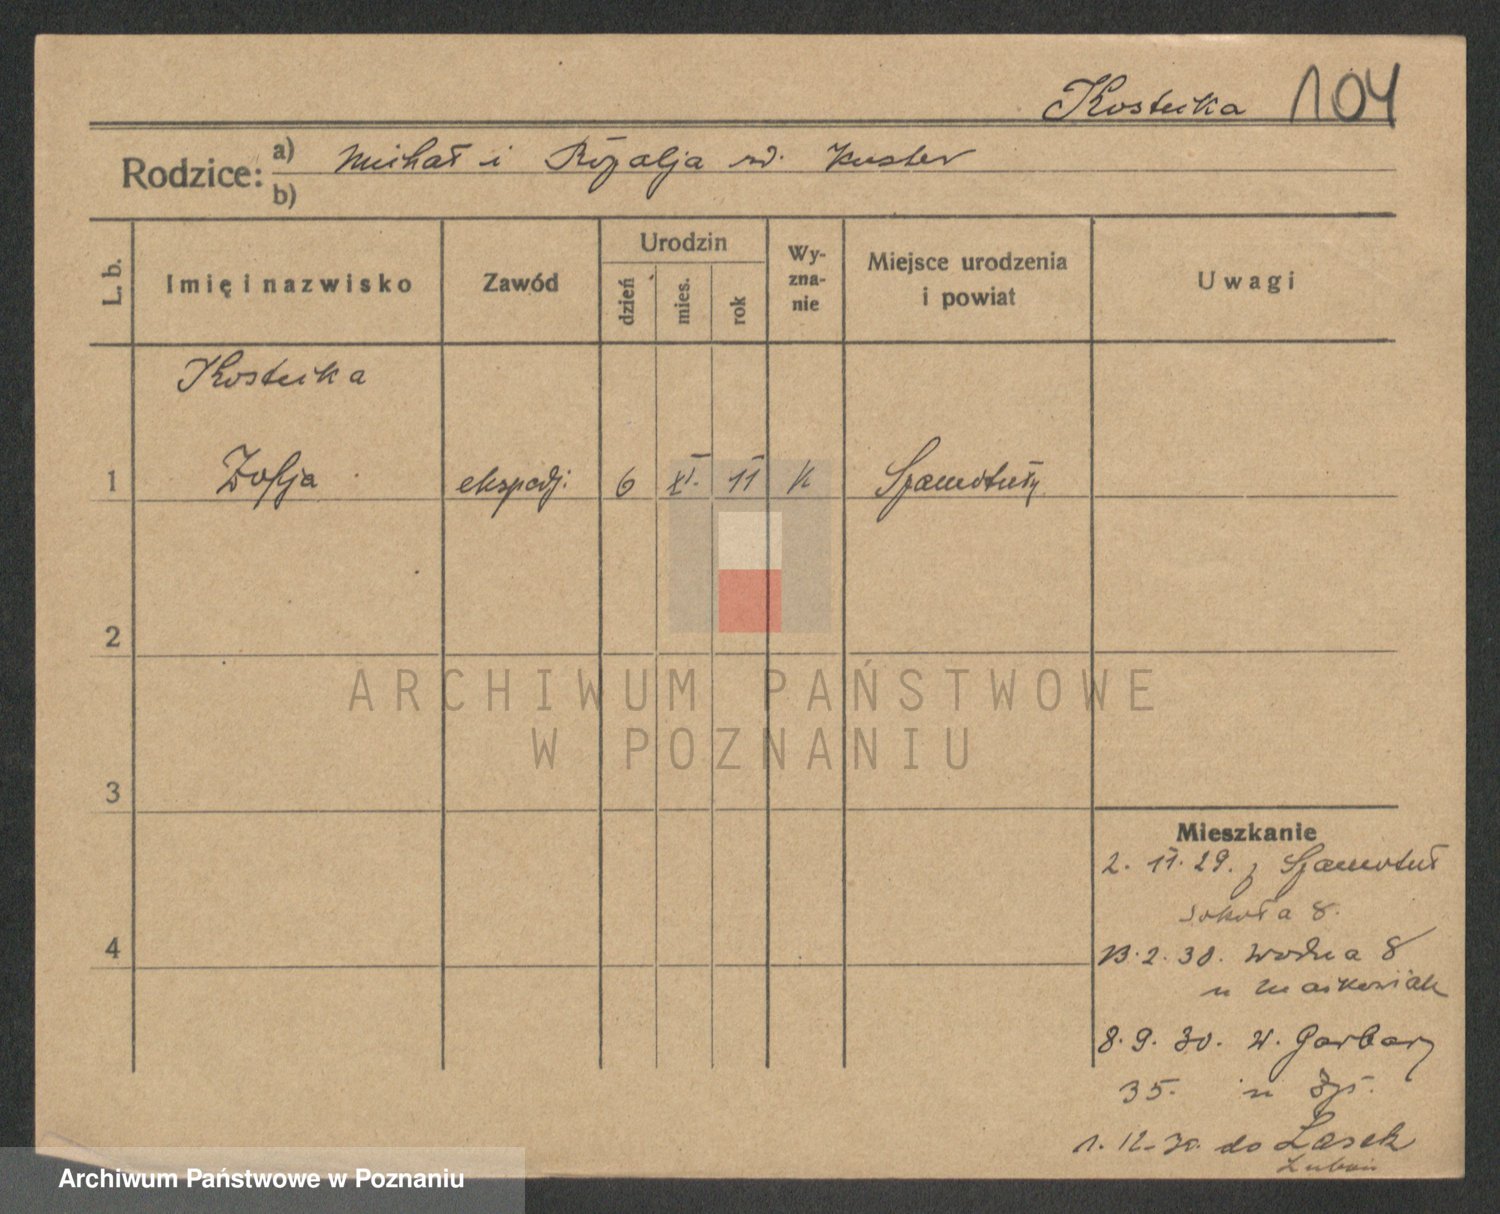 Kosteika 104
Rodzice: a) Michał i Rozalja ur. Kuster
b)
L. b. Imię i nazwisko Zawód Urodzin dzień mies. rok Wy-zna-nie Miejsce urodzenia i powiat Uwagi
Kosteika
1 Zofja ekspedj. 6 XI. 11 K Szamotuły
2
ARCHIWUM PAŃSTWOWE
W POZNANIU
3
Mieszkanie
2. 11. 29. z Szamotuł
Sokoła 8.
4
13. 2. 30. Wodna 8
u
8. 9. 30. W. Garbary
35. u
1. 12. 30. do Lasek
Luboń
Archiwum Państwowe w Poznaniu